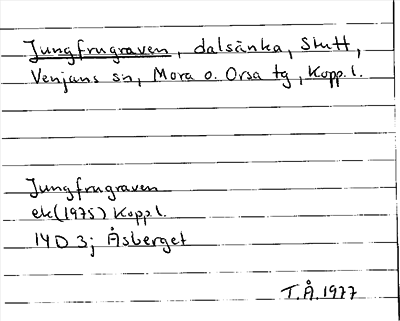 Jungfrugraven, dalsänka, Slutt,
Venjans sn, Mora o. Orsa tg, Kopp. l.
Jungfrugraven
ek (1975) Kopp l.
14 D 3; Åsberget
T.Å. 1977